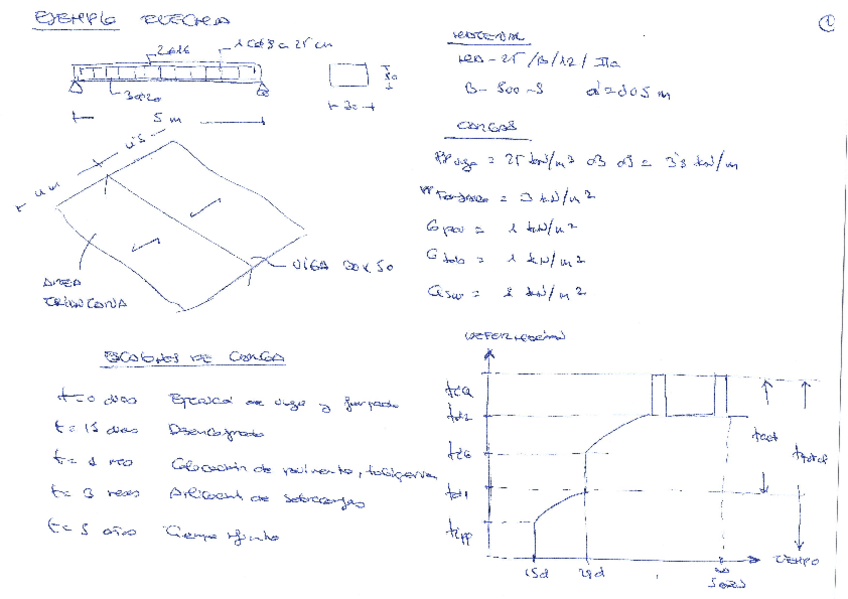 EJEMPLO FLECHA
1
2ø16
1 cø8 a 25 cm
3ø20
50
30
5 m
4 m
4'5
VIGA 30x50
AREA
TRIBUTARIA
MATERIAL
HA-25/B/12/IIa
B-500-S d'=0'05 m
CARGAS
PP viga = 25 kN/m³ 0'3 0'5 = 3'8 kN/m
PP Forjado = 3 kN/m²
G pav = 1 kN/m²
G tab = 1 kN/m²
Q su = 2 kN/m²
ESCALONES DE CARGA
t=0 dias Ejecución de viga y forjado
t=15 dias Desencofrado
t= 1 mes Colocación de pavimento, tabiquería
t= 3 meses Aplicación de sobrecargas
t= 5 años Tiempo infinito
DEFORMACIÓN
fiQ
fd2
fiG
fd1
fipp
fact
ftotal
15d
28d
5 años
TIEMPO